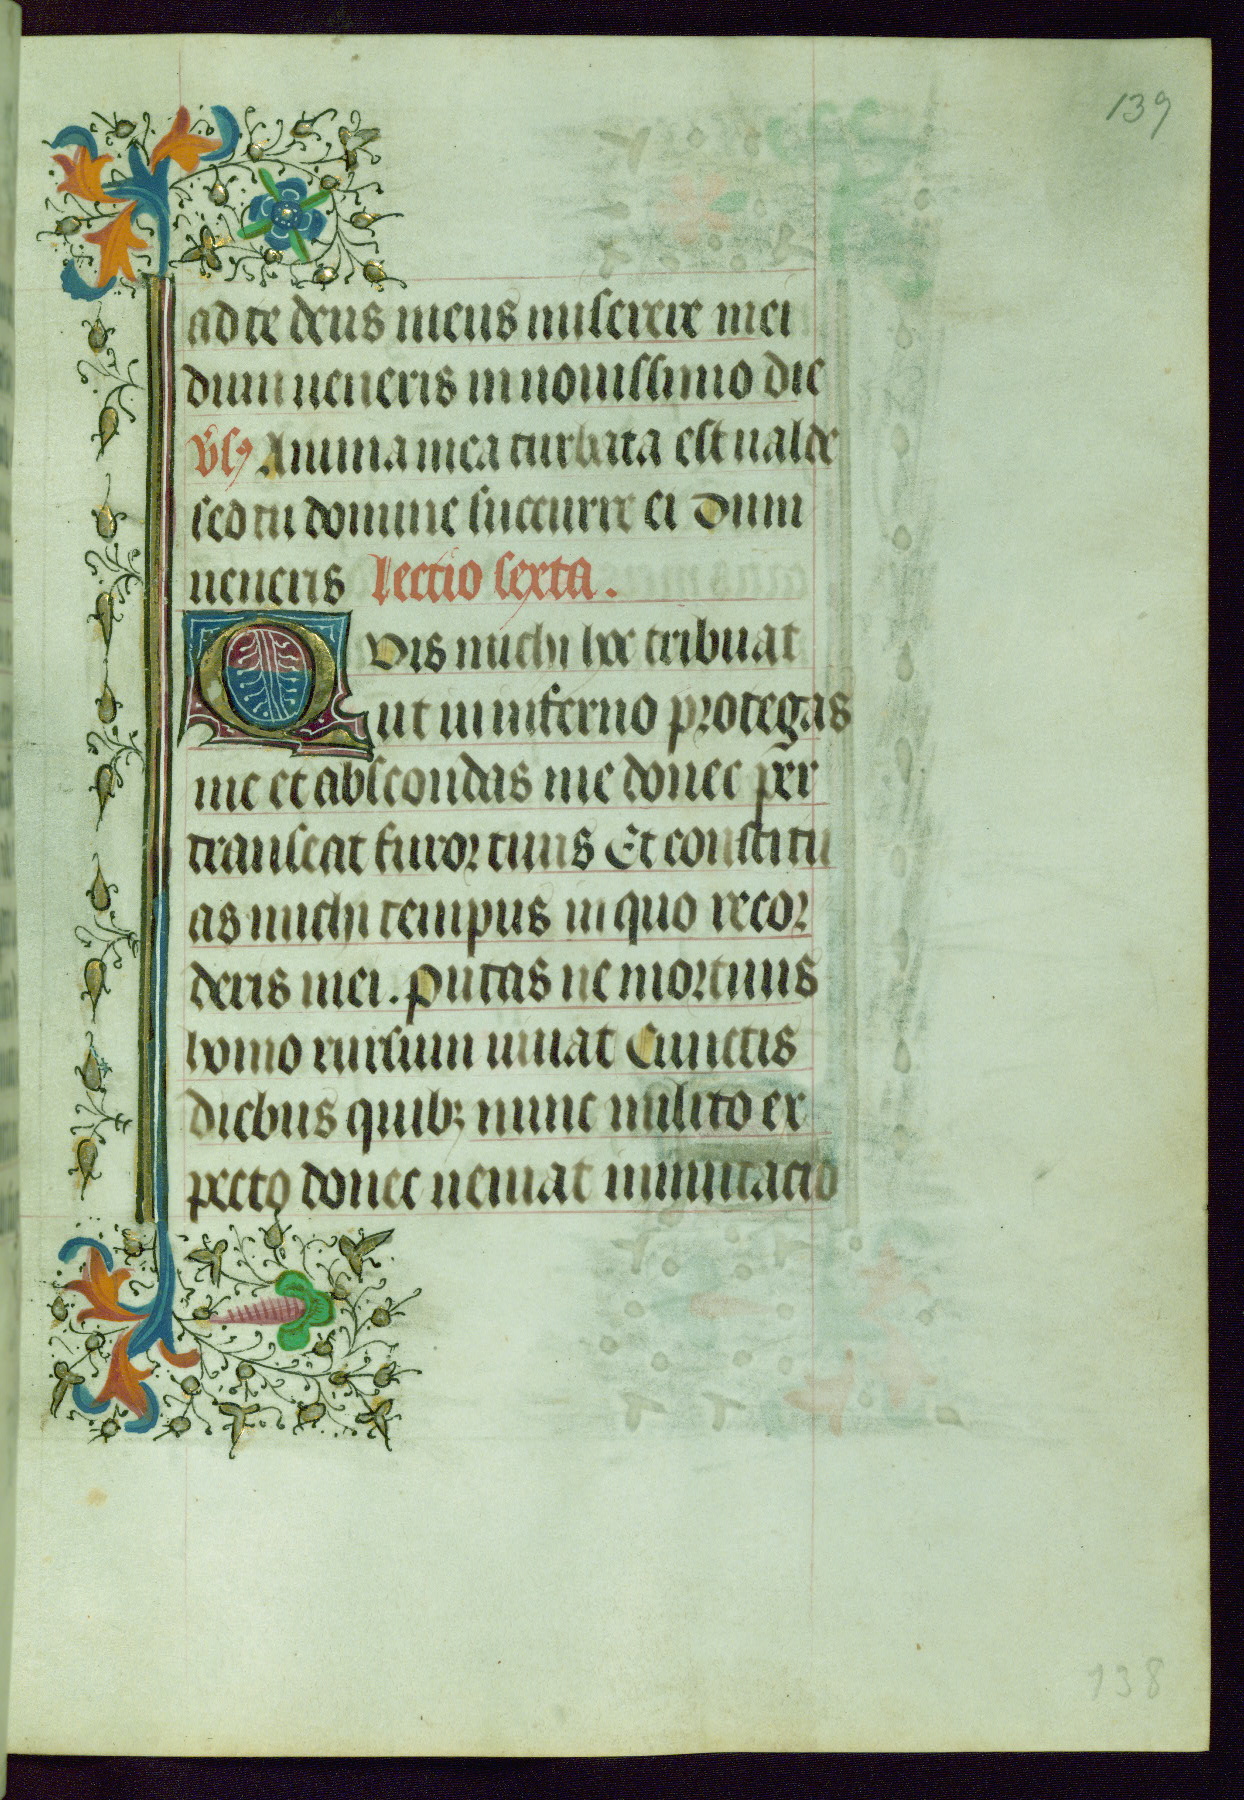 139
ad te deus meus miserere mei
dum ueneris in nouissimo die
v̄s Anima mea turbata est ualde
sed tu domine succurre ei Dum
ueneris Lectio sexta.
Quis michi hoc tribuat
ut in inferno protegas
me et abscondas me donec per
transeat furor tuus Et constitu
as michi tempus in quo recor
deris mei. putas ne mortuus
homo rursum uiuat Cunctis
diebus quibꝫ nunc milito ex
pecto donec ueniat inmutacio
138